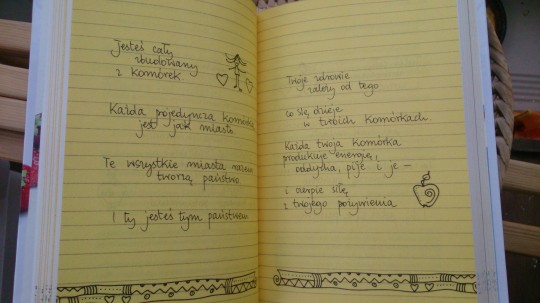 Jesteś cały
zbudowany
z komórek.
Każda pojedyncza komórka
jest jak miasto.
Te wszystkie miasta razem
tworzą państwo.
I ty jesteś tym państwem
Twoje zdrowie
zależy od tego
co się dzieje
w twoich komórkach.
Każda twoja komórka
produkuje energię,
oddycha, pije i je –
i czerpie siłę
z twojego pożywienia